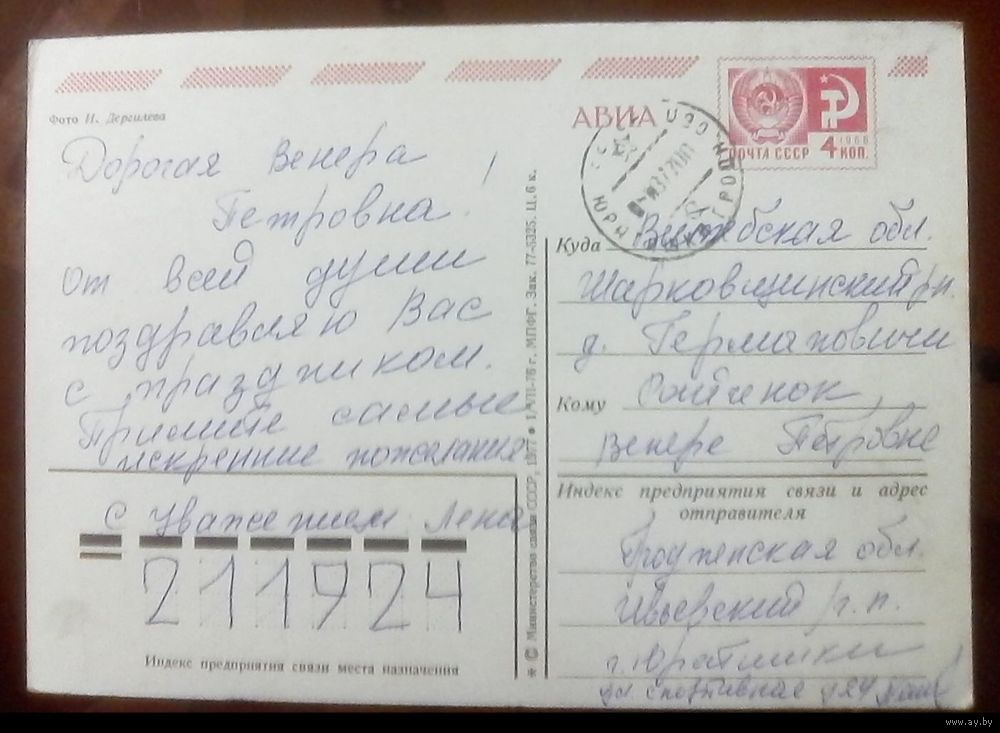 Фото И. Дергилева
Дорогая Венера
Петровна!
От всей души
поздравляю Вас
с праздником.
Примите самые
искренние пожелания
с уважением Лена
211924
Индекс предприятия связи места назначения
© Министерство связи СССР, 1977 • 1/VII-76 г. МПФГ. Зак. 77-5325. Ц. 6 к.
АВИА
1966
ПОЧТА СССР 4 КОП.
Куда Витебская обл.
Шарковщинский р-н.
д. Германовичи
Кому
Венере Петровне
Индекс предприятия связи и адрес
отправителя
Гродненская обл.
Ивьевский р.н.
г. Юратишки
ул. спортивная
www.ay.by